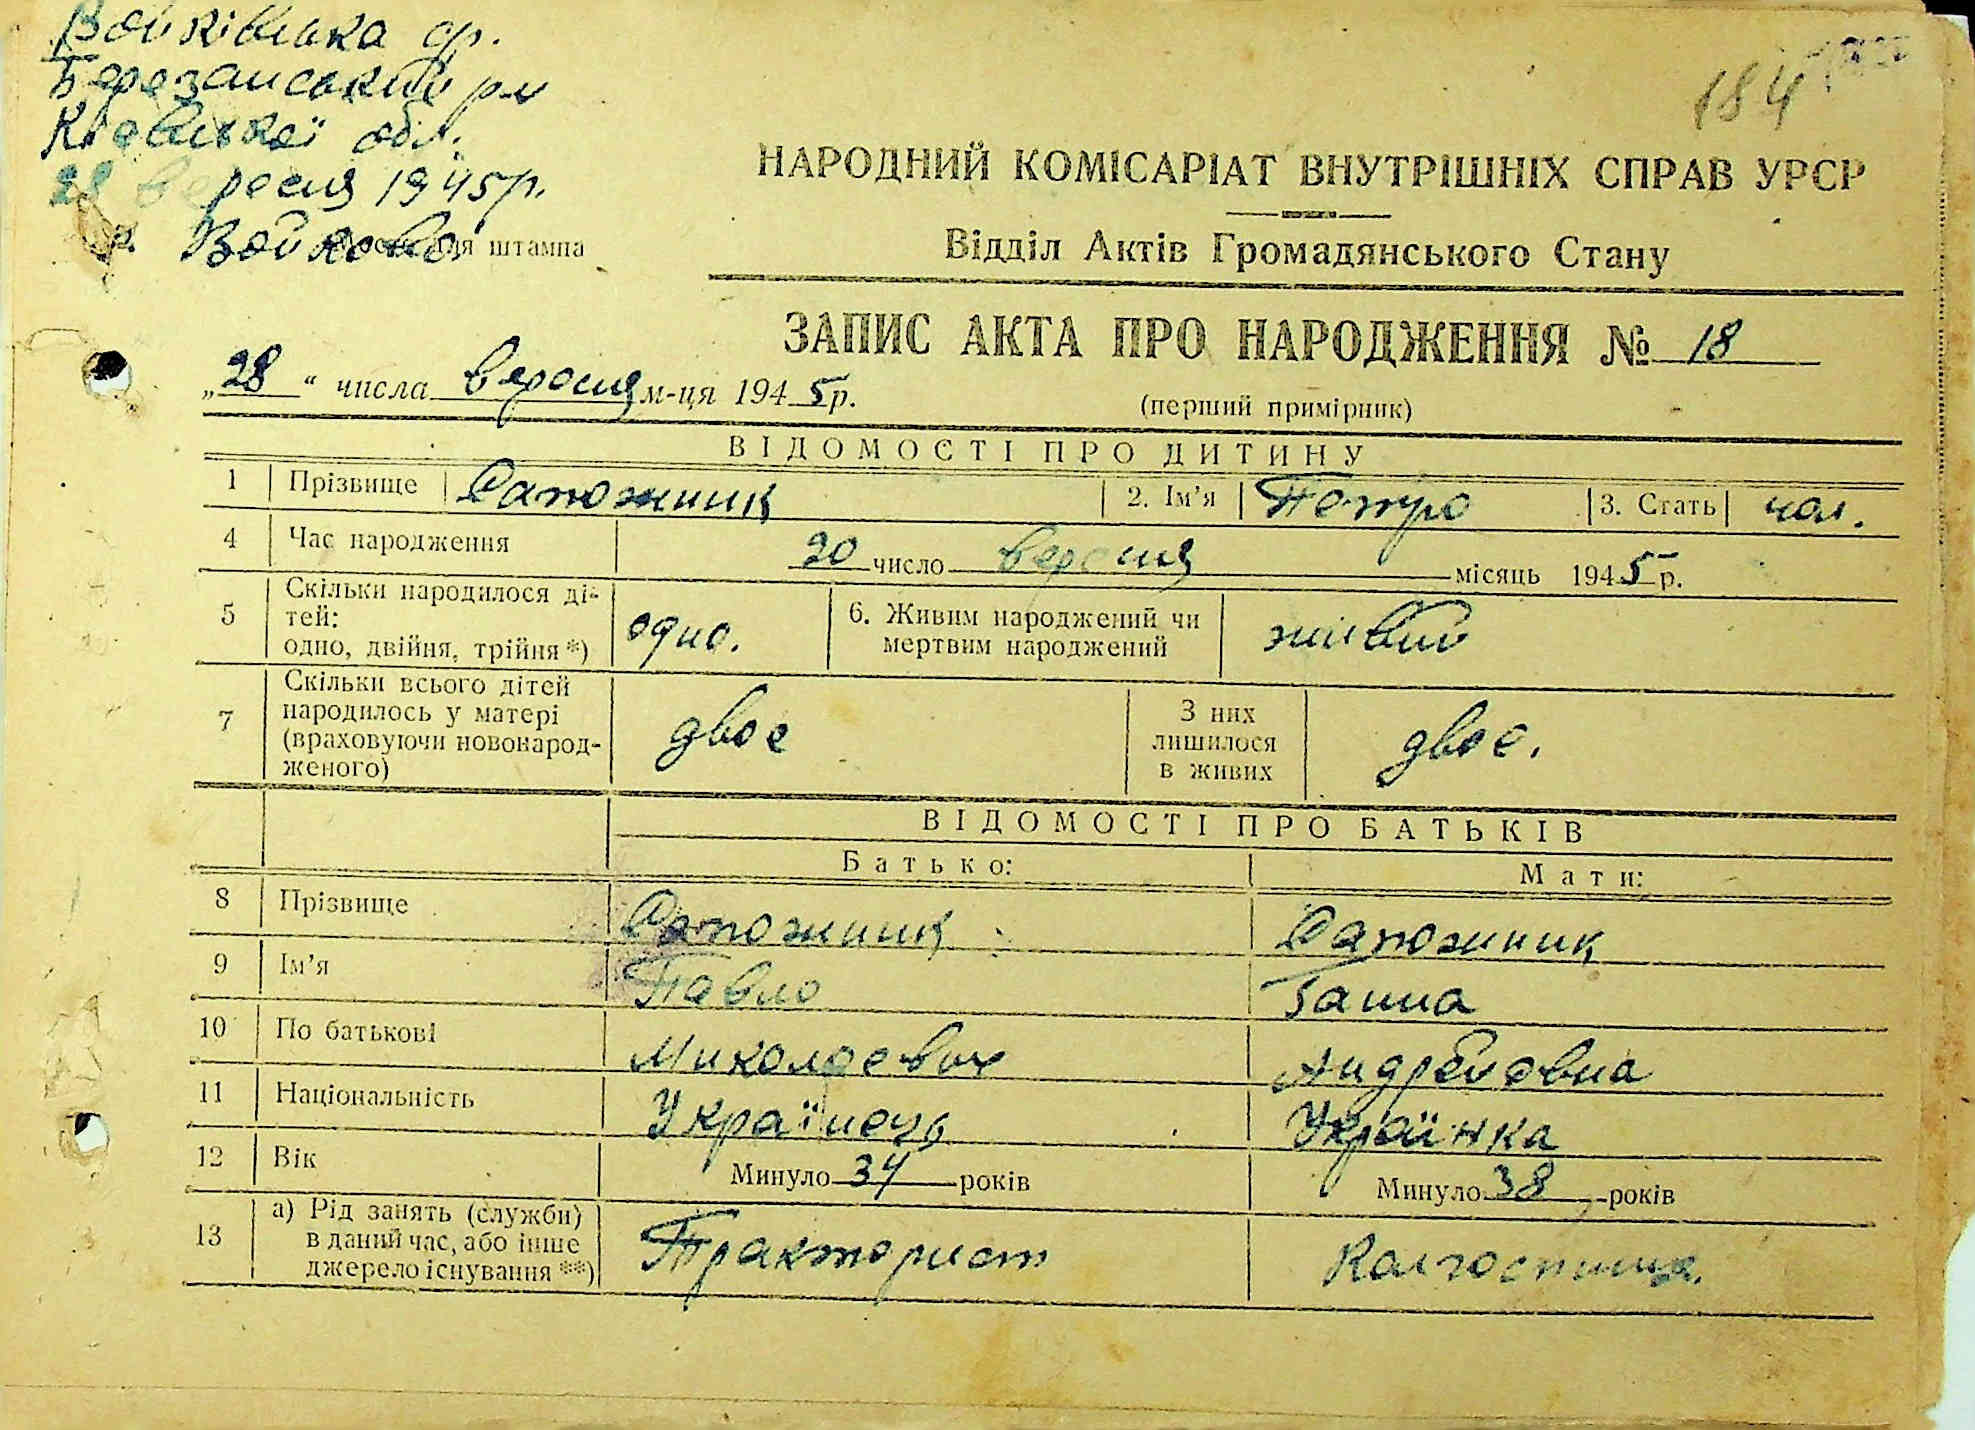 Войківська ср.
Березанський р-н
Київської обл.
28 вересня 1945 р.
с. Войково
штампа
184
НАРОДНИЙ КОМІСАРІАТ ВНУТРІШНІХ СПРАВ УРСР
Відділ Актів Громадянського Стану
ЗАПИС АКТА ПРО НАРОДЖЕННЯ № 18
„28“ числа вересня м-ця 1945 р.
(перший примірник)
ВІДОМОСТІ ПРО ДИТИНУ
1 Прізвище Сапожник 2. Ім'я Петро 3. Стать чол.
4 Час народження 20 число вересня місяць 1945 р.
5 Скільки народилося ді-
тей:
одно, двійня, трійня *) одно. 6. Живим народжений чи
мертвим народжений живий
7 Скільки всього дітей
народилось у матері
(враховуючи новонарод-
женого) двоє З них
лишилося
в живих двоє.
ВІДОМОСТІ ПРО БАТЬКІВ
Батько: Мати:
8 Прізвище Сапожник Сапожник
9 Ім'я Павло Ганна
10 По батькові Миколаевич Андреївна
11 Національність Українець Українка
12 Вік Минуло 34 років Минуло 38 років
13 а) Рід занять (служби)
в даний час, або інше
джерело існування **) Тракторист Колгоспниця.